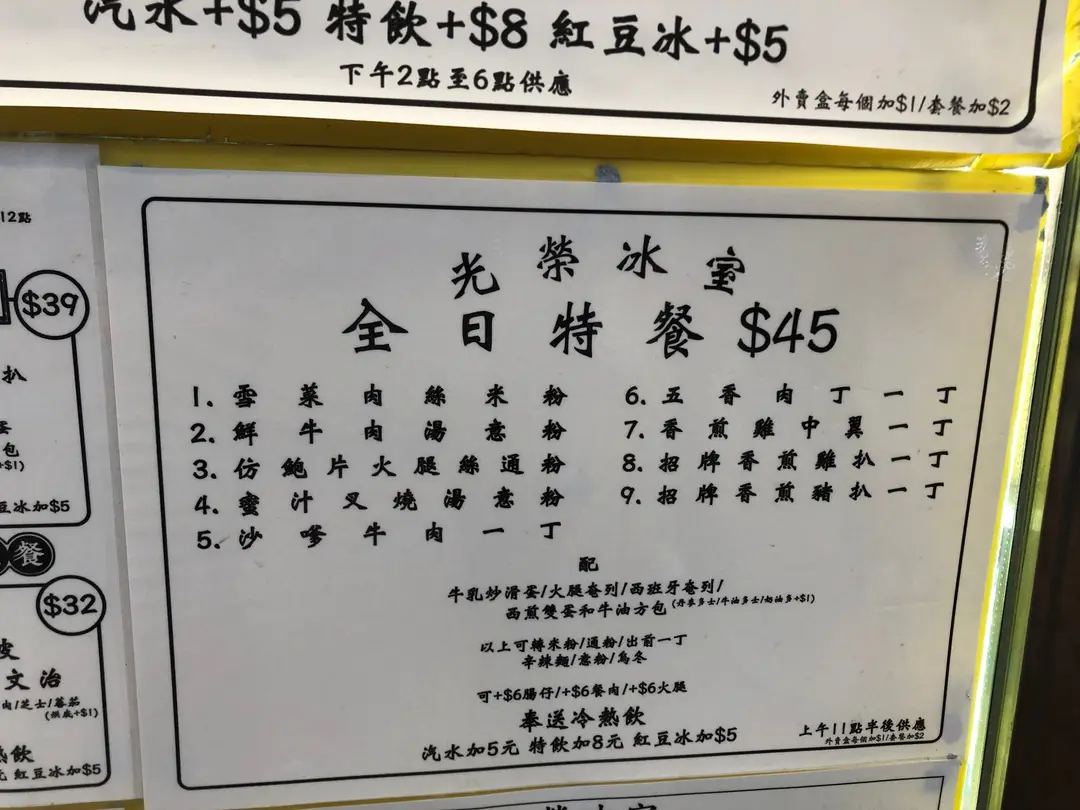 汽水+$5 特飲+$8 紅豆冰+$5
下午2點至6點供應
外賣盒每個加$1/套餐加$2
12點
$39
扒
包
+$1)
豆冰加$5
餐
$32
文治
肉/芝士/蕃茄
(烘底+$1)
熱飲
元 紅豆冰加$5
光榮冰室
全日特餐 $45
1. 雪菜肉絲米粉
2. 鮮牛肉湯意粉
3. 仿鮑片火腿絲通粉
4. 蜜汁叉燒湯意粉
5. 沙嗲牛肉一丁
6. 五香肉丁一丁
7. 香煎雞中翼一丁
8. 招牌香煎雞扒一丁
9. 招牌香煎豬扒一丁
配
牛乳炒滑蛋/火腿奄列/西班牙奄列/
西煎雙蛋和牛油方包(丹麥多士/牛油多士/奶油多+$1)
以上可轉米粉/通粉/出前一丁
辛辣麵/意粉/烏冬
可+$6腸仔/+$6餐肉/+$6火腿
奉送冷熱飲
汽水加5元 特飲加8元 紅豆冰加$5
上午11點半後供應
外賣盒每個加$1/套餐加$2